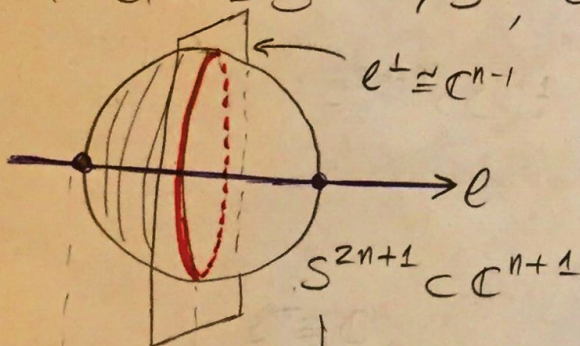 ℓ^⊥ ≅ ℂ^{n-1}
ℓ
S^{2n+1} ⊂ ℂ^{n+1}